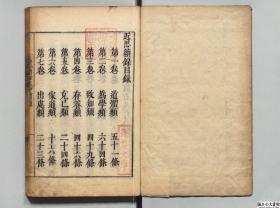 近思續錄目錄
第一卷 道體類 五十一條
第二卷 爲學類 六十四條
第三卷 致知類 四十九條
第四卷 存養類 四十四條
第五卷 克己類 二十四條
第六卷 家道類 十六條
第七卷 出處類 二十三條